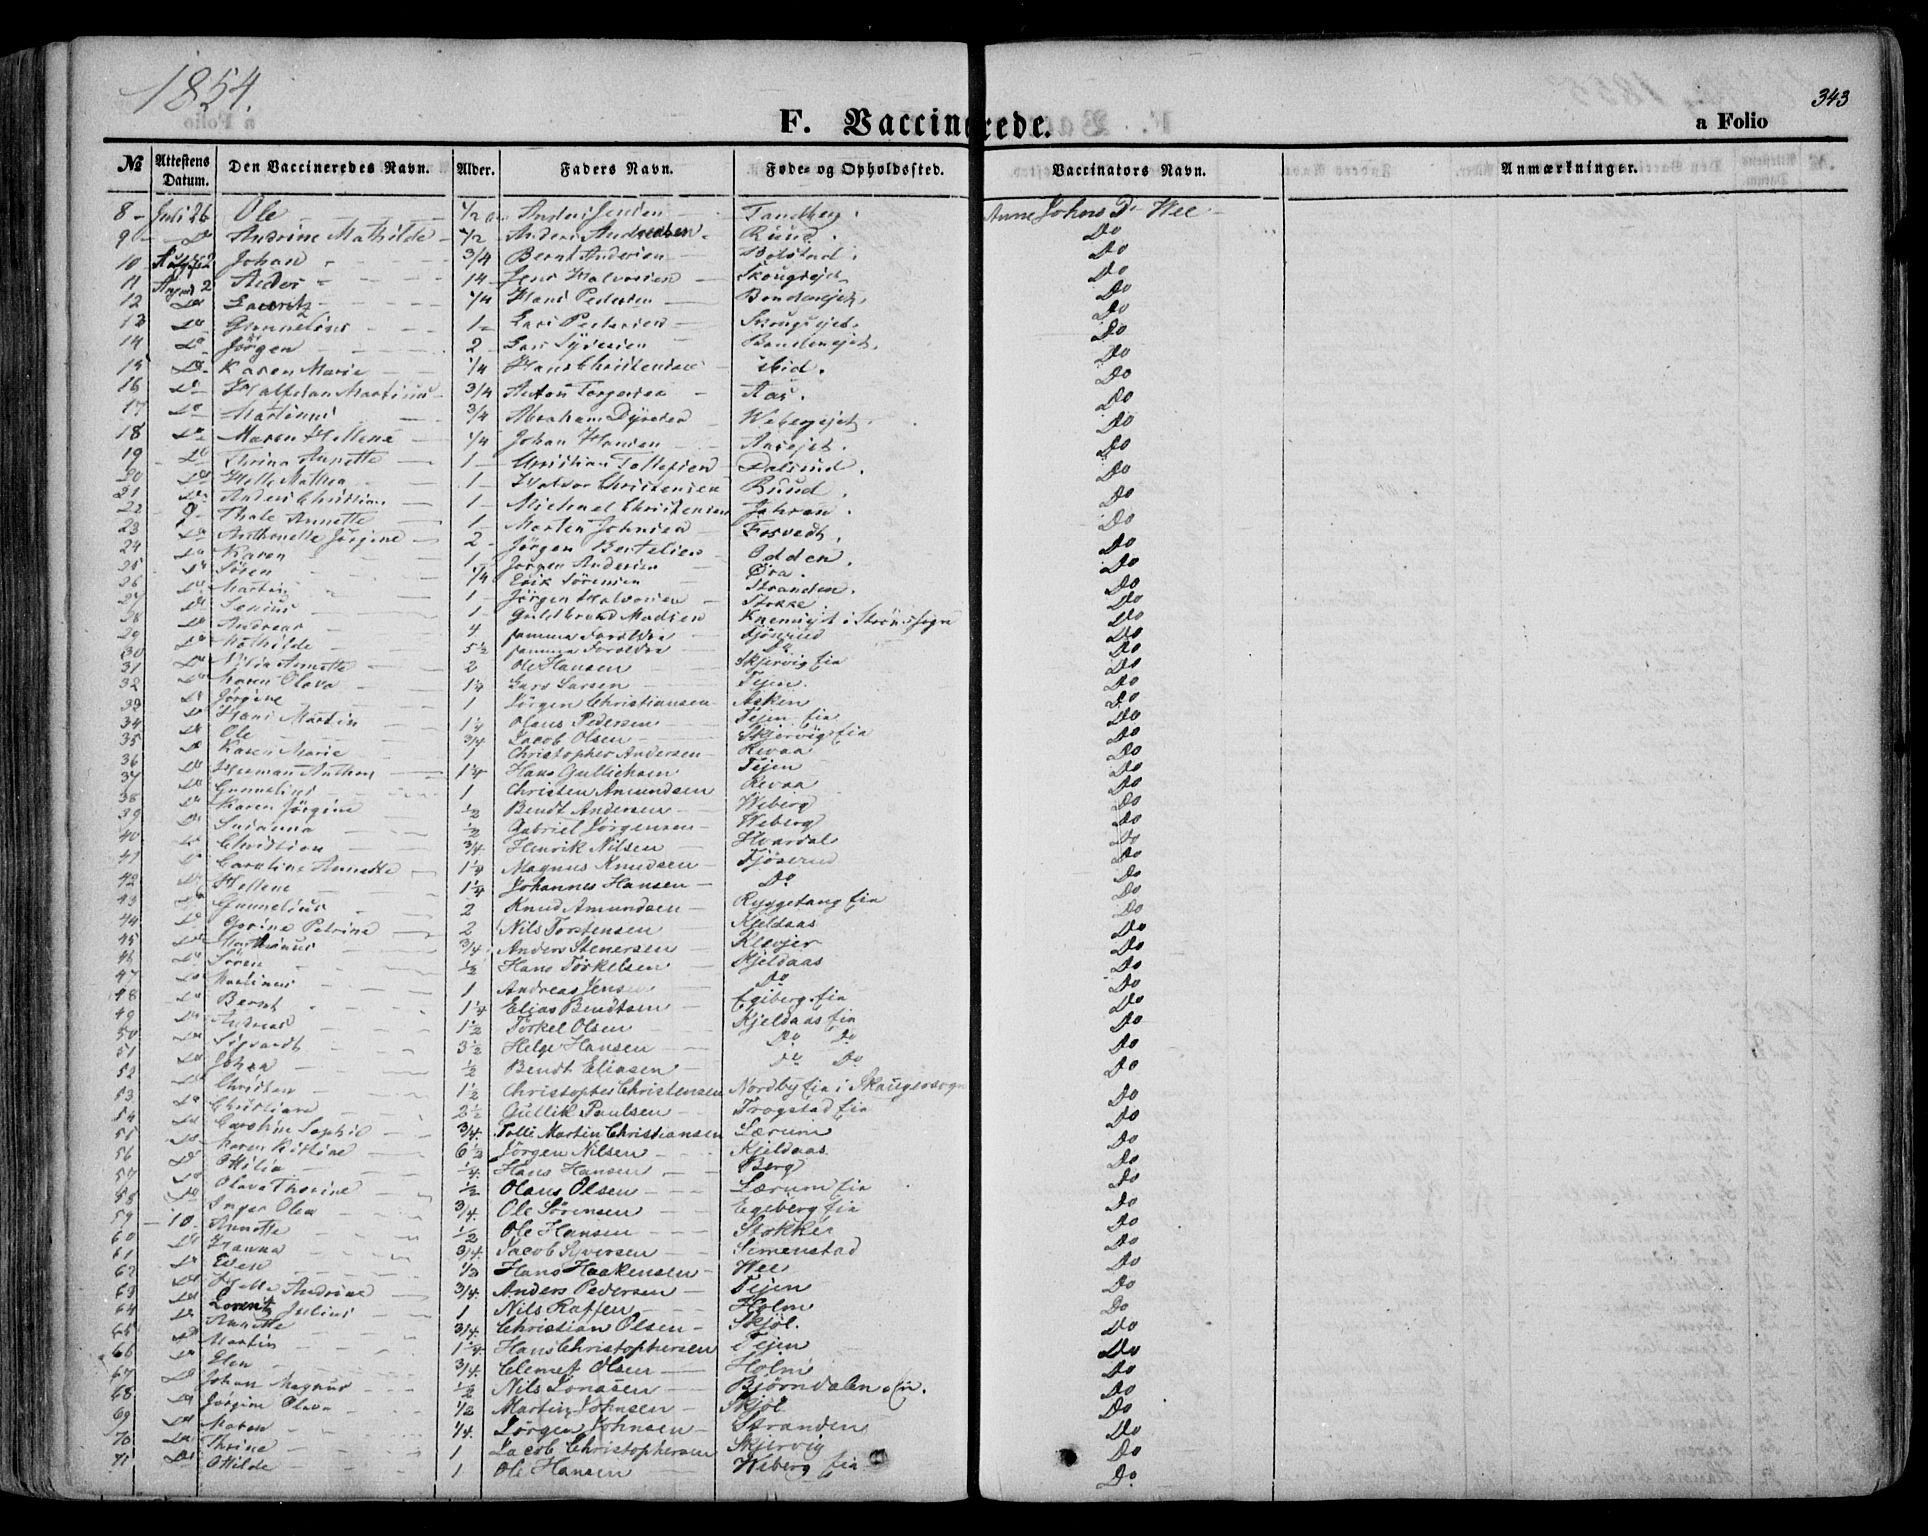 1854.
343
F. Vaccinerede.
a Folio
№ Attestens Datum. Den Vaccineredes Navn. Alder. Faders Navn. Føde- og Opholdssted. Vaccinators Navn. Anmærkninger.
8 - Juli 26 Ole 1/2 Anders Jensen Tandberg. Anne Johns D- Wee
9 - Do Andrine Mathilde 1/2 Anders Andersen Ruud. Do
10 Johan 3/4 Bernt Andersen Bolstad. Do
11 August 2 Peder 14 Jens Halvorsen Skougsejet Do
12 Do Lauritz 1/4 Hans Pedersen Bondenejet. Do
13 Do Gunnelius 1 Lars Pedersen Skougsejet. Do
14 Do Jörgen 2 Lars Syversen Do
15 Do Karen Marie 1/4 Hans Christensen ibid. Do
16 Do Halfdan Martinus 3/4 Anton Torgersen Aas. Do
17 Do Martinus 3/4 Abraham Dyresen Webergejet. Do
18 Do Maren Hellene 1/4 Johan Hansen Aasejet. Do
19 Do Thrina Annette 1 Christian Tollefsen Dalsrud. Do
20 Do Helle Mathea 1 Halvor Christensen Ruud. Do
21 Do Anders Christian 1 Michael Christensen Jahren. Do
22 - 9 - Thale Annette 1 Morten Johnsen Fosvedt. Do
23 Do Anthonette Jörgine 2 Jörgen Bertelsen Odden. Do
24 Do Karen 1 Jörgen Andersen Øra. Do
25 Do Søren 1/4 Erik Sörensen Stranden. Do
26 Do Martin 1 Jörgen Halvorsen Stokke. Do
27 Do 1 Guldbrand Madsen i Strømsogn Do
28 Do Andreas 4 samma Foreldre Fjøserud Do
29 Do Mathilde 5 1/2 samma Foreldre Do Do
30 Do Annette 2 Ole Hansen Skjervig fia Do
31 Do Maren Olava 1 1/4 Lars Larsen Tejen. Do
32 Do Jørgine 1 Jörgen Christiansen Asken Do
33 Do Hans Martin 1 1/4 Olaus Pedersen Tejen fia Do
34 Do Ole 3/4 Jacob Olsen Skjervig fia Do
35 Do Karen Marie 1 Christopher Andersen Revaa Do
36 Do Herman Anthon 1 1/4 Hans Gullichsen Tejen Do
37 Do Gunnelius 1 Christen Amundsen Revaa Do
38 Do Karen Jørgine 1/2 Bendt Andersen Weberg Do
39 Do Susanna 1/2 Gabriel Jörgensen Weberg Do
40 Do Christian 3/4 Henrik Nilsen Hvardal Do
41 Do Caroline Annette 1 1/4 Magnus Knudsen Fjøserud Do
42 Do Hellene 1 1/4 Johannes Hansen Do Do
43 Do Gunnelius 2 Knud Amundsen Ryggetang fia Do
44 Do Gorine Petrine 2 Nils Torstensen Kjeldaas Do
45 Do Marthinus 3/4 Anders Stenersen Klevjer Do
46 Do Søren 1/2 Hans Torkelsen Kjeldaas Do
47 Do Martinus 1 Andreas Jensen Do Do
48 Do Bernt 1 1/4 Elias Bendtsen Egiberg fia Do
49 Do Andreas 1 1/2 Torkel Olsen Kjeldaas fia Do
50 Do Sigvardt 3 1/2 Helge Hansen Do Do Do
51 Do Johan 1/2 Bendt Eliasen Do Do Do
52 Do Christen 1 1/2 Christopher Christensen Nordby fia i Skaugersogn Do
53 Do Christiane 2 1/2 Gullik Paulsen Trogstad fia Do
54 Do Caroline Sophie 3/4. Tolle Martin Christiansen Lærum Do
55 Do Karen Kistine 6 1/2 Jörgen Nilsen Kjeldaas. Do
56 Do Otilia 1/4. Hans Hansen Berg Do
57 Do Olava Thorine 1/2 Olaus Olsen Lærum fia Do
58 Do Inger Olea 3/4. Ole Sörensen Egiberg fia Do
59 - 10 - Annette 1/2 Ole Hansen Stokke Do
60 Do Hanna 3/4. Jacob Syversen Simenstad Do
61 Do Even 1/3 Hans Haakensen Wee Do
62 Do Helle Andrine 3/4. Anders Pedersen Tejen Do
63 Do Lorentz Julius 1 Nils Raffen Holm Do
64 Do Annette 3/4. Christian Olsen Skjöl. Do
65 Do Martin 1 1/4. Hans Christophersen Tejen Do
66 Do Elen 3/4. Clemet Olsen Holm Do
67 Do Johan Magnus 1/2 Nils Jonasen Björndalen. fia. Do
68 Do Jørgine Olava 1/2 Martin Johnsen Skjöl Do
69 Do Maren 1/4. Jörgen Johnsen Stranden Do
70 Do Thrine 1 Jacob Christophersen Skjervig Do
71 Do Otilde 1 Ole Hansen Weberg fia Do.